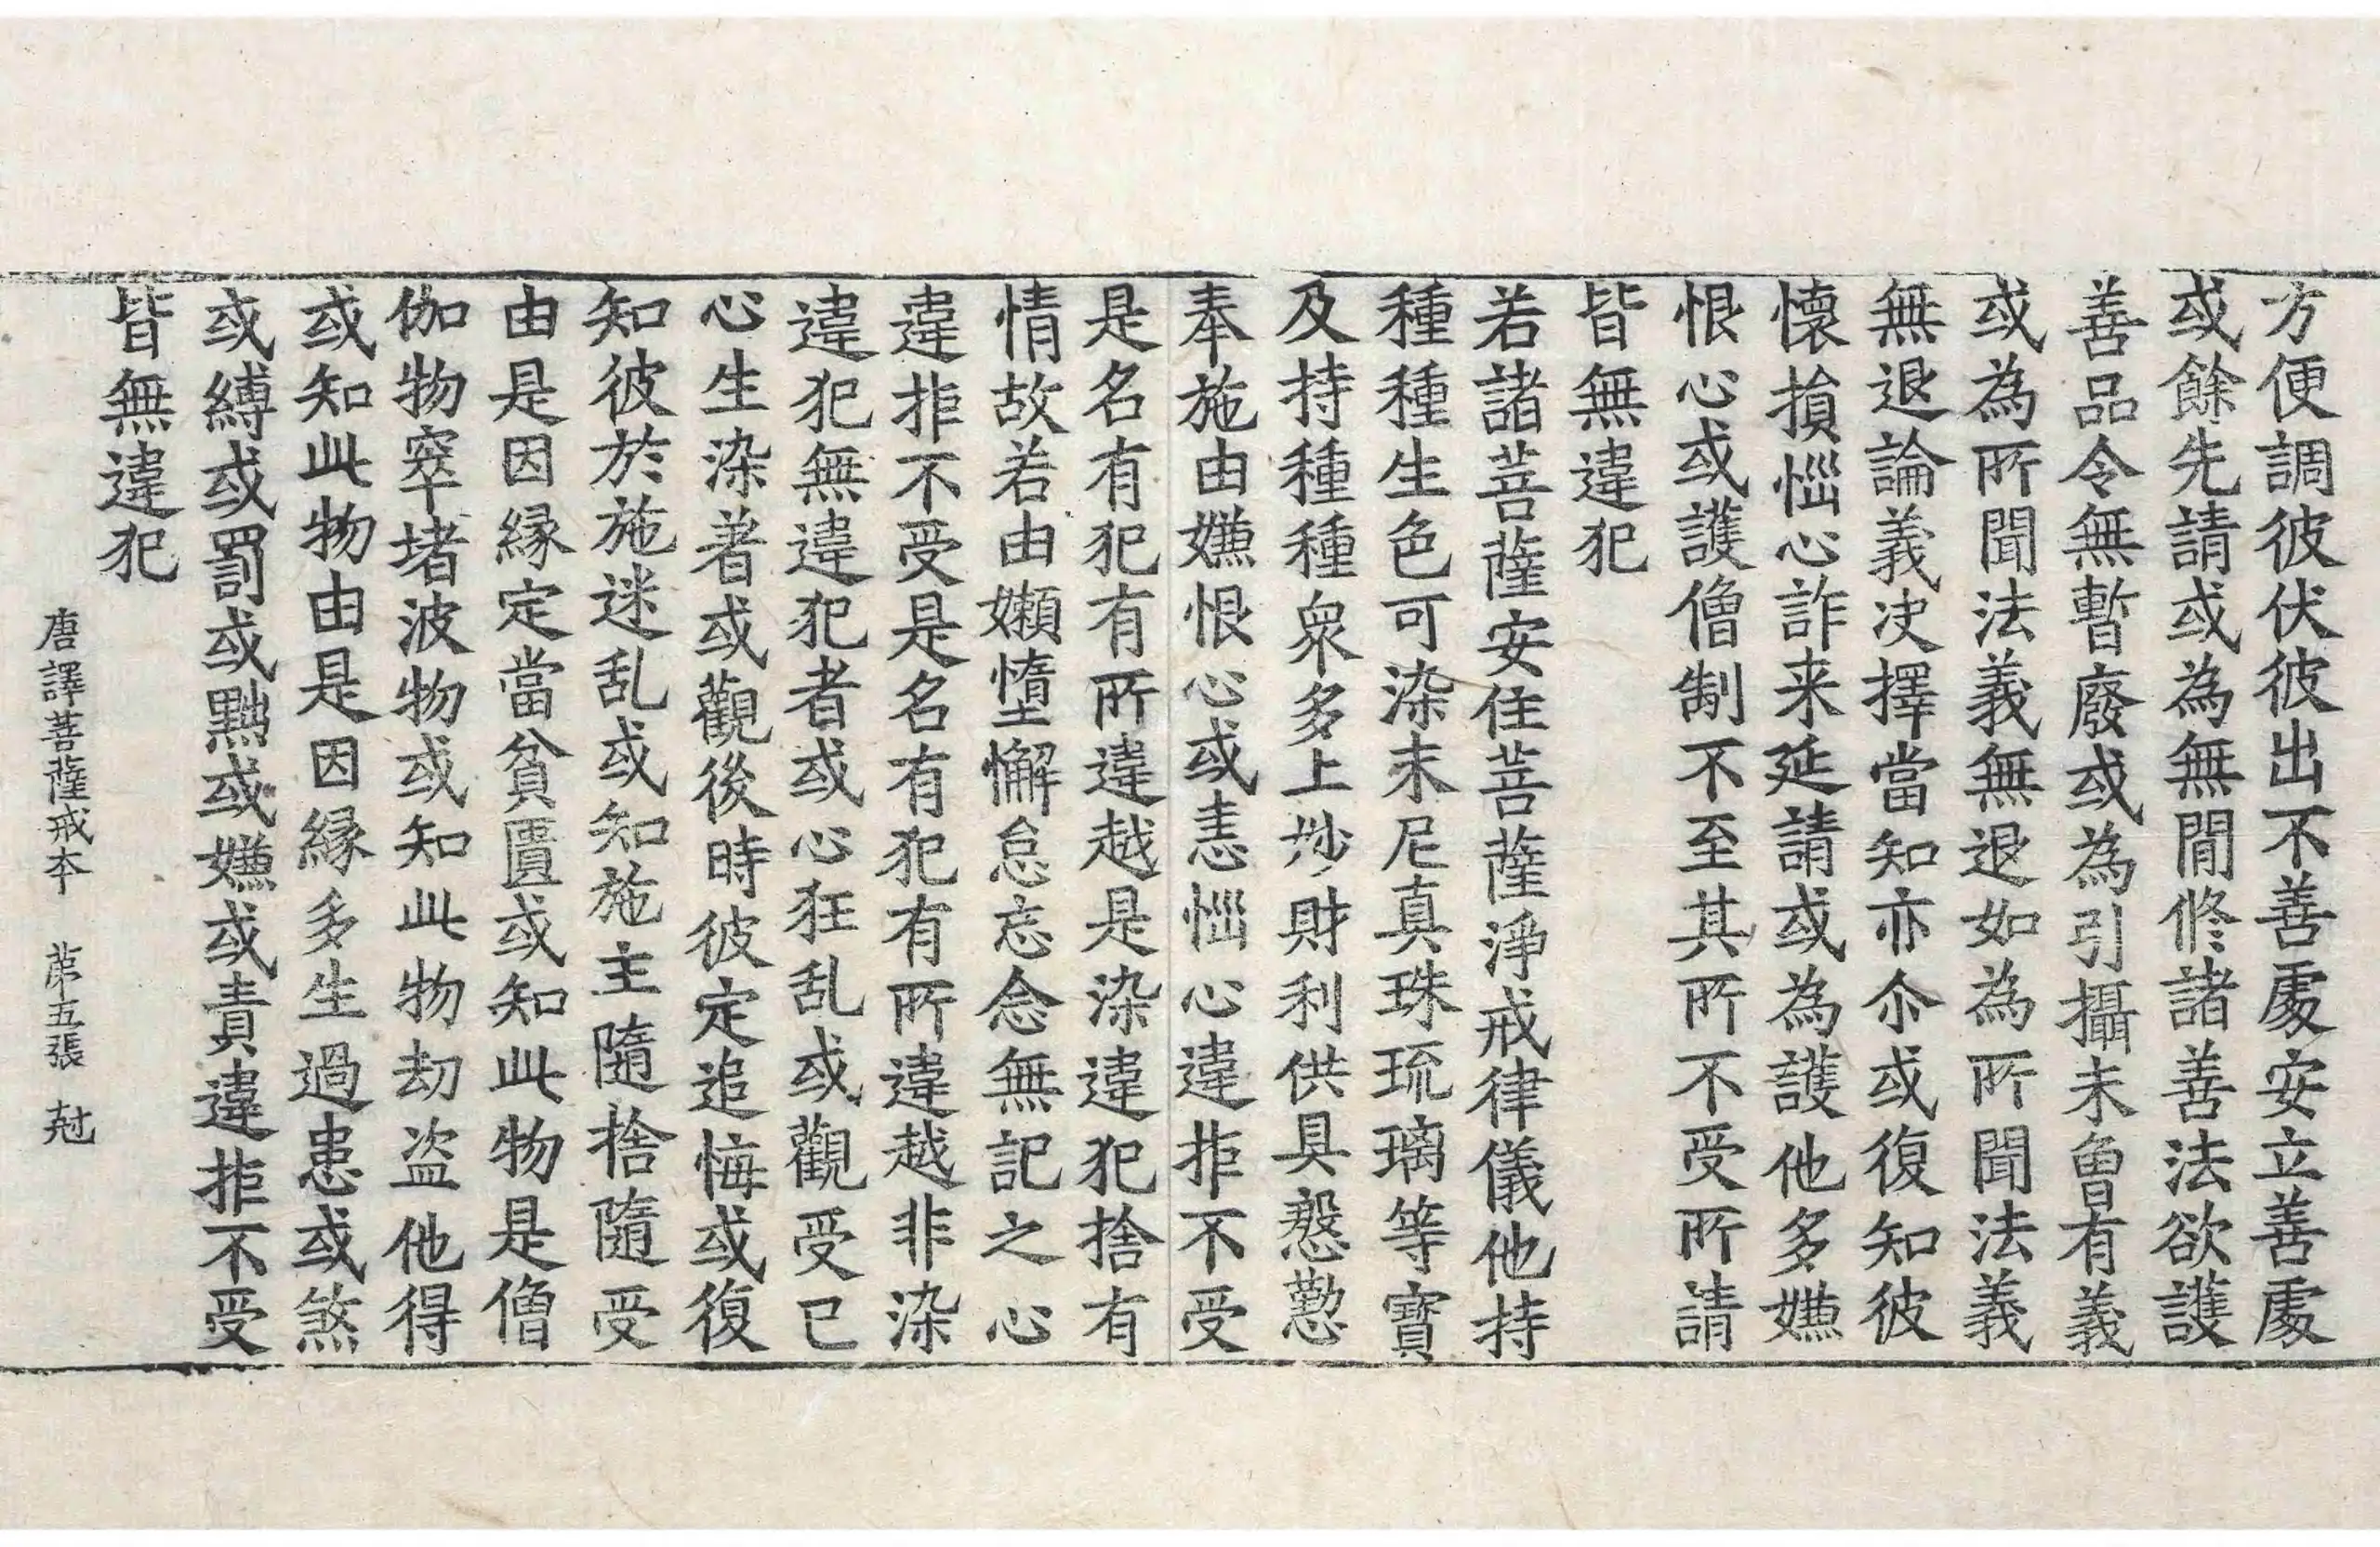 方便調彼伏彼出不善處安立善處
或餘先請或為無間修諸善法欲護
善品令無暫廢或為引攝未曾有義
或為所聞法義無退如為所聞法義
無退論義决擇當知亦尒或復知彼
懷損惱心詐来延請或為護他多嫌
恨心或護僧制不至其所不受所請
皆無違犯
若諸菩薩安住菩薩淨戒律儀他持
種種生色可染末尼真珠琉璃等寳
及持種種衆多上妙財利供具慇懃
奉施由嫌恨心或恚惱心違拒不受
是名有犯有所違越是染違犯捨有
情故若由嬾惰懈怠忘念無記之心
違拒不受是名有犯有所違越非染
違犯無違犯者或心狂乱或觀受已
心生染著或觀後時彼定追悔或復
知彼於施迷乱或知施主隨捨隨受
由是因縁定當貧匱或知此物是僧
伽物窣堵波物或知此物劫盗他得
或知此物由是因縁多生過患或煞
或縛或罰或黜或嫌或責違拒不受
皆無違犯
唐譯菩薩戒本 苐五張 尅